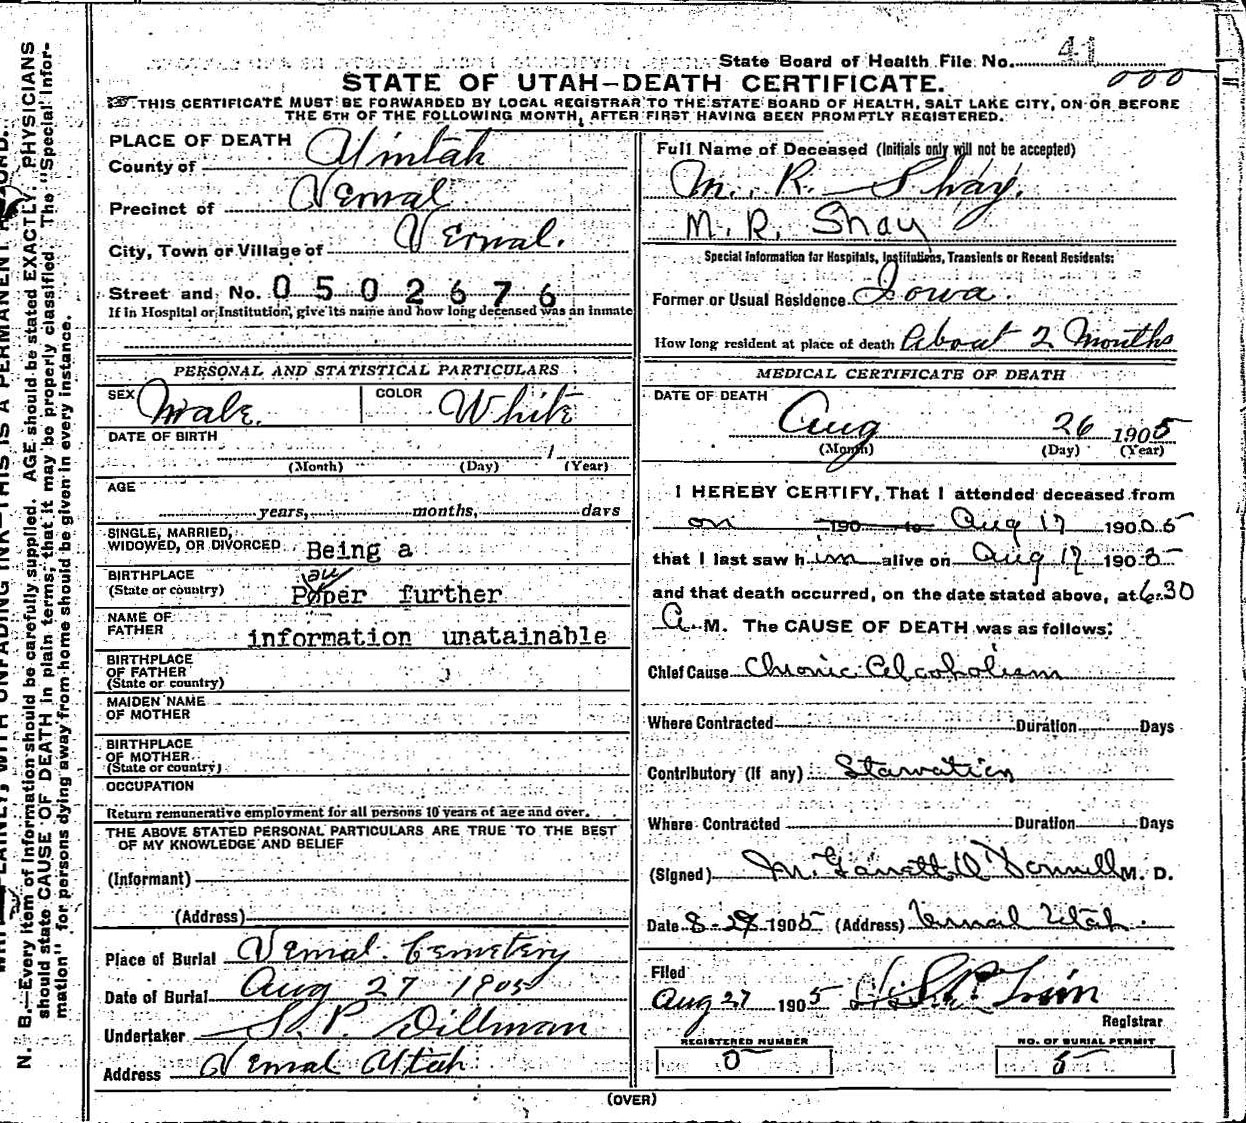 State Board of Health File No. 41
000
STATE OF UTAH—DEATH CERTIFICATE.
THIS CERTIFICATE MUST BE FORWARDED BY LOCAL REGISTRAR TO THE STATE BOARD OF HEALTH, SALT LAKE CITY, ON OR BEFORE
THE 5TH OF THE FOLLOWING MONTH, AFTER FIRST HAVING BEEN PROMPTLY REGISTERED.
PLACE OF DEATH
County of Uintah
Precinct of Vernal
City, Town or Village of Vernal.
Street and No. 0502676
If in Hospital or Institution, give its name and how long deceased was an inmate
PERSONAL AND STATISTICAL PARTICULARS
SEX Male. COLOR White
DATE OF BIRTH
1
(Month) (Day) (Year)
AGE
years, months, days
SINGLE, MARRIED,
WIDOWED, OR DIVORCED Being a
BIRTHPLACE
(State or country) au
Poper further
NAME OF
FATHER information unatainable
BIRTHPLACE
OF FATHER
(State or country)
MAIDEN NAME
OF MOTHER
BIRTHPLACE
OF MOTHER
(State or country)
OCCUPATION
Return remunerative employment for all persons 10 years of age and over.
THE ABOVE STATED PERSONAL PARTICULARS ARE TRUE TO THE BEST
OF MY KNOWLEDGE AND BELIEF
(Informant)
(Address)
Place of Burial Vernal Cemetery
Date of Burial Aug 27 1905
Undertaker S. P. Dillman
Address Vernal Utah
Full Name of Deceased (Initials only will not be accepted)
M. R. Shay.
M. R. Shay
Special Information for Hospitals, Institutions, Transients or Recent Residents:
Former or Usual Residence Iowa.
How long resident at place of death About 2 Months
MEDICAL CERTIFICATE OF DEATH
DATE OF DEATH
Aug 26 1905
(Month) (Day) (Year)
I HEREBY CERTIFY, That I attended deceased from
on 190 to Aug 17 1905
that I last saw him alive on Aug 17 1905
and that death occurred, on the date stated above, at 6:30
A. M. The CAUSE OF DEATH was as follows:
Chief Cause Chronic Alcoholism
Where Contracted Duration Days
Contributory (if any) Starvation
Where Contracted Duration Days
(Signed) M. Garrett O'Donnell M. D.
Date 8-29 1905 (Address) Vernal Utah.
Filed
Aug 27 1905
Registrar
REGISTERED NUMBER
5
NO. OF BURIAL PERMIT
5
(OVER)
N. B.—Every item of information should be carefully supplied. AGE should be stated EXACTLY. PHYSICIANS
should state CAUSE OF DEATH in plain terms, that it may be properly classified. The "Special Infor-
mation" for persons dying away from home should be given in every instance.